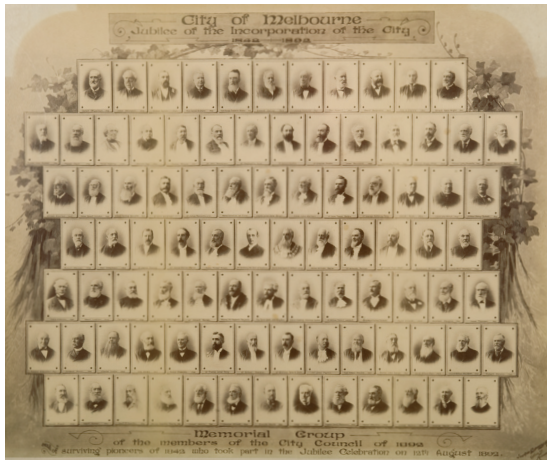 City of Melbourne
Jubilee of the Incorporation of the City
1842 1892
Memorial Group
of the members of the City Council of 1892
surviving pioneers of 1842 who took part in the Jubilee Celebration on 12th August 1892.